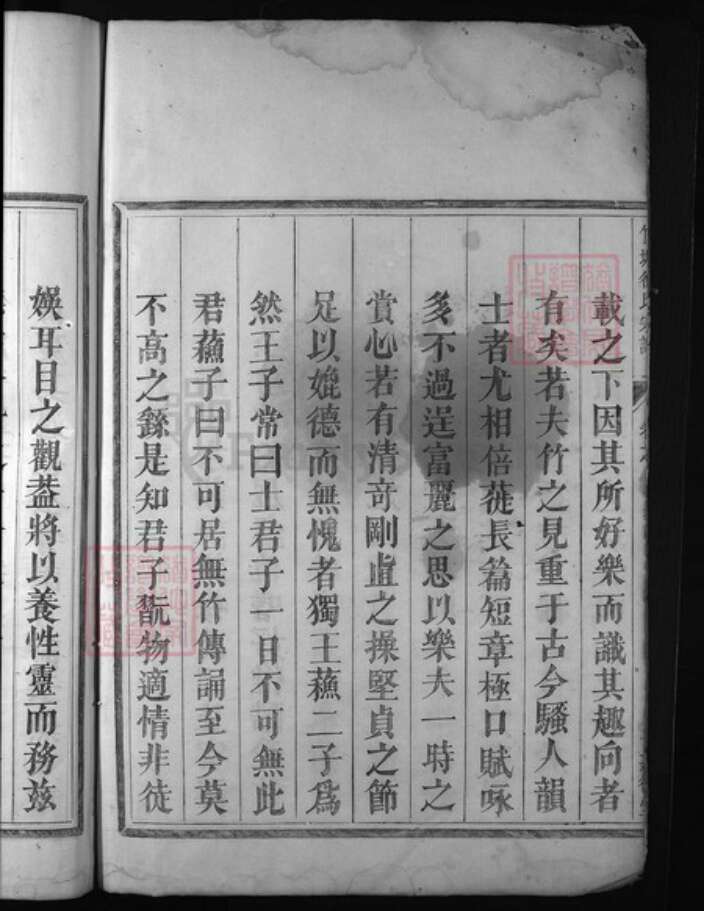 載之下因其所好樂而識其趣向者
有矣若夫竹之見重于古今騷人韻
士者尤相倍蓰長篇短章極口賦咏
多不過逞富麗之思以樂夫一時之
賞心若有清奇剛直之操堅貞之節
足以媲德而無愧者獨王蘓二子爲
然王子常曰士君子一日不可無此
君蘓子曰不可居無竹傳誦至今莫
不高之繇是知君子翫物適情非徒
娛耳目之觀葢將以養性靈而務兹